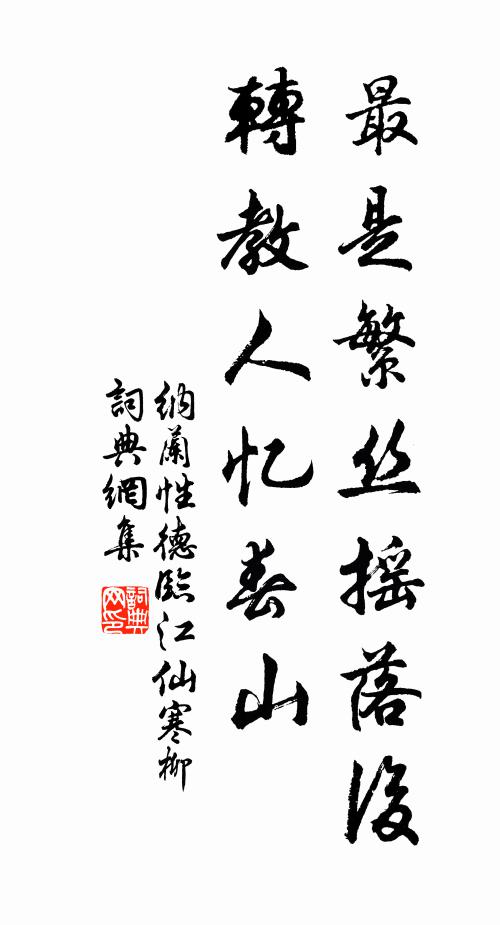 最是繁丝摇落後
轉教人忆春山
纳蘭性德臨江仙寒柳
詞典網集
詞典网印